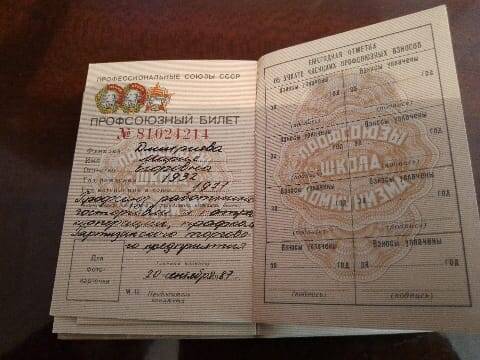 ПРОФЕССИОНАЛЬНЫЕ СОЮЗЫ СССР
ПРОФСОЮЗНЫЙ БИЛЕТ
№ 81024214
Фамилия Дмитриева
Имя
Отчество Игоревна
Год рождения 1932
Год вступления в союз 1957
Профсоюз работников
госторговли и
кооперации, профком
торгово
го предприятия
Для
фото-
карточки
20 сентября 87 г.
М.П.
ЕЖЕГОДНАЯ ОТМЕТКА
ОБ УПЛАТЕ ЧЛЕНСКИХ ПРОФСОЮЗНЫХ ВЗНОСОВ
Взносы уплачены Взносы уплачены
ГОД ГОД
(подпись) (подпись)
Взносы уплачены Взносы уплачены
ГОД ГОД
(подпись) (подпись)
Взносы уплачены Взносы уплачены
ГОД ГОД
(подпись) (подпись)
Взносы уплачены Взносы уплачены
ГОД ГОД
(подпись) (подпись)
ПРОФСОЮЗЫ
ШКОЛА
КОММУНИЗМА